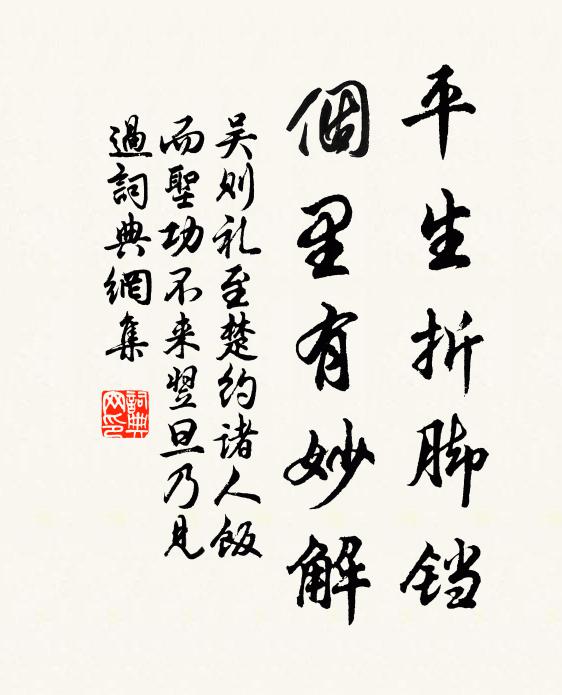 平生折脚铛
個里有妙解
吴则礼至楚约诸人饭
而聖功不来翌旦乃见
過詞典網集
詞典
网印